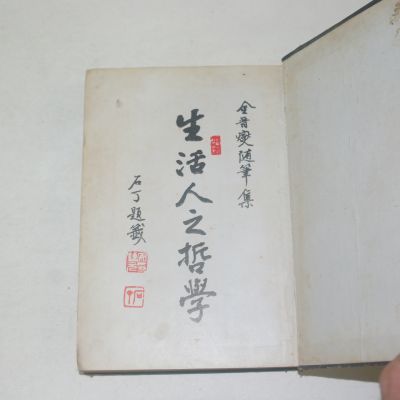 金晋燮随筆集
生活人之哲學
石丁題籤